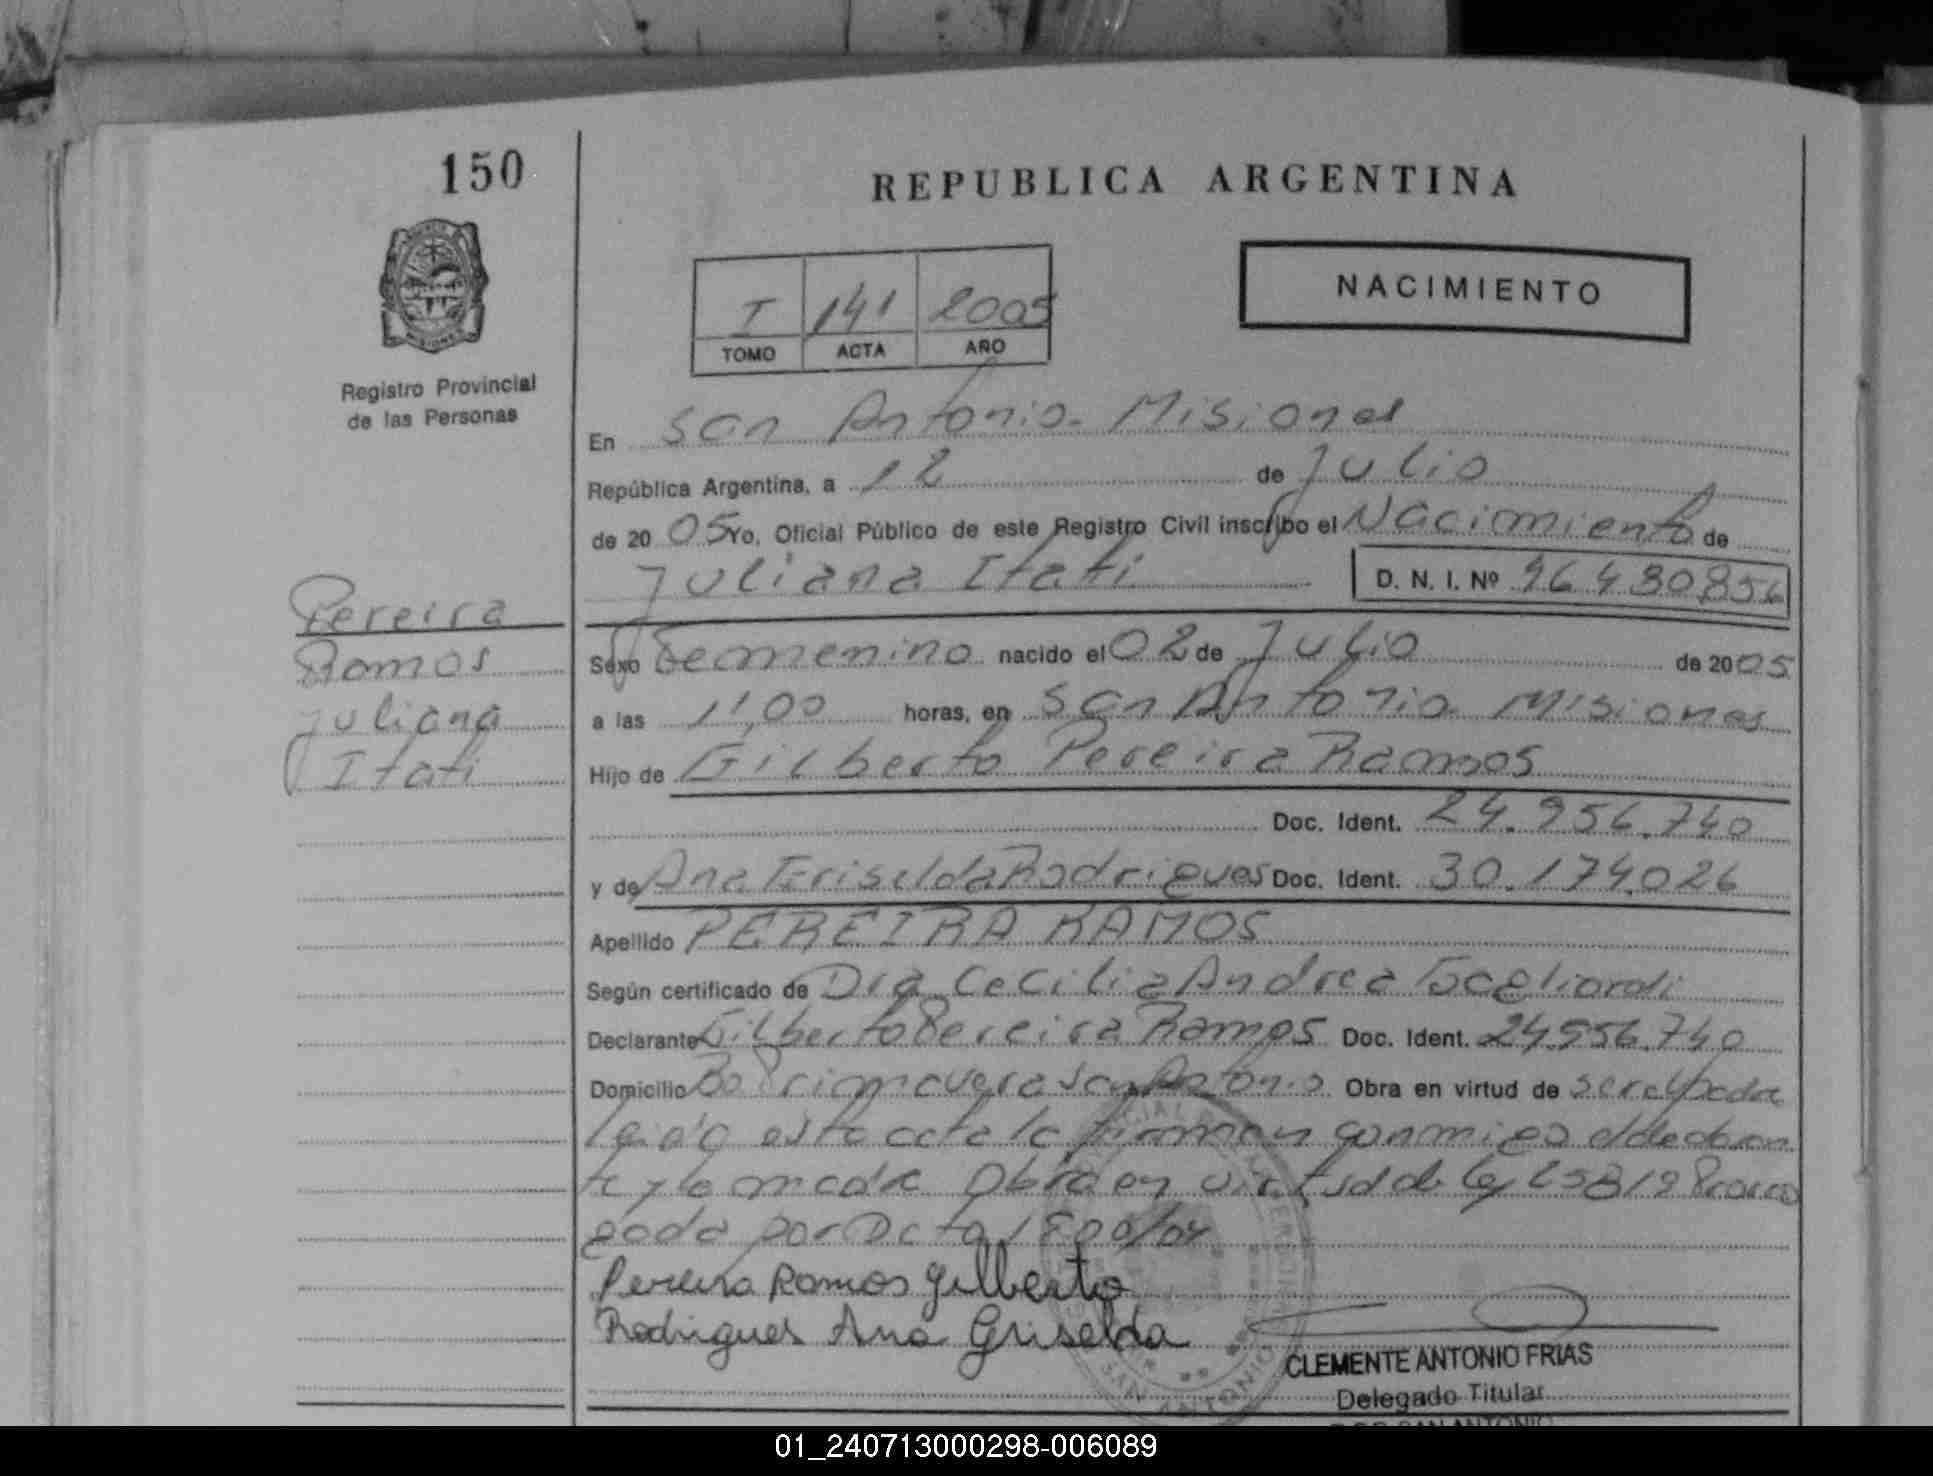 150
REPUBLICA ARGENTINA
I 141 2005
TOMO ACTA AÑO
NACIMIENTO
Registro Provincial
de las Personas
En San Antonio - Misiones
República Argentina, a 12 de Julio
de 2005 Yo, Oficial Público de este Registro Civil inscribo el Nacimiento de
Juliana Itati D. N. I. Nº 96430856
Pereira
Ramos
Juliana
Itati
Sexo Femenino nacido el 02 de Julio de 2005
a las 11,00 horas, en San Antonio Misiones
Hijo de Gilberto Pereira Ramos
Doc. Ident. 24.956.740
y de Ana Griselda Rodrigues Doc. Ident. 30.174.026
Apellido PEREIRA RAMOS
Según certificado de Dra Cecilia Andrea Gagliardi
Declarante Gilberto Pereira Ramos Doc. Ident. 24.956.740
Domicilio Bo Primavera San Antonio Obra en virtud de ser el padre
leida esta acta la firman conmigo el declaran
te y la madre Obra en virtud de ley 25819 Prorro
gada por Dcto 1800/04
Pereira Ramos Gilberto
Rodrigues Ana Griselda
CLEMENTE ANTONIO FRIAS
Delegado Titular
SAN ANTONIO
01_240713000298-006089